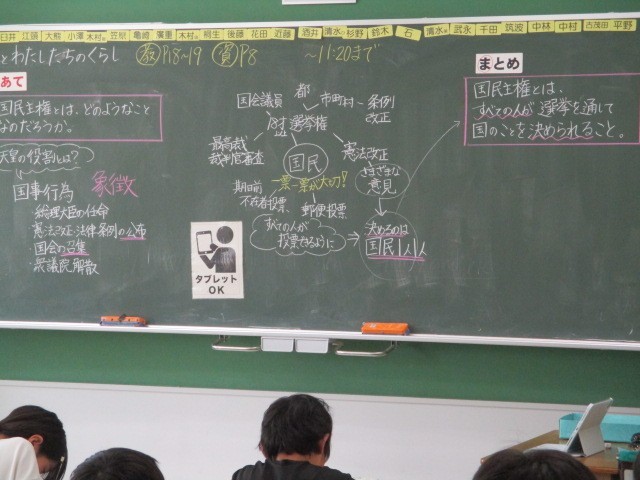 臼井 江頭 大熊 小澤 木村 笠原 亀崎 廣重 木村 桐生 後藤 花田 近藤 酒井 清水 杉野 鈴木 石 清水 武永 千田 筑波 中林 中村 古茂田 平野
とわたしたちのくらし 教P.18~19 資P8 ~11:20まで
めあて
国民主権とは、どのようなこと
なのだろうか。
天皇の役割とは?
国事行為 象徴
総理大臣の任命
憲法改正・法律・条例の公布
国会の召集
衆議院解散
国会議員 都 市町村 条例
改正
18才 選挙権
最高裁
裁判官審査
国民
憲法改正
一票一票が大切!
期日前
不在者投票
郵便投票
すべての人が
投票できるように
さまざまな
意見
決めるのは
国民一人一人
タブレット
OK
まとめ
国民主権とは、
すべての人が選挙を通して
国のことを決められること。